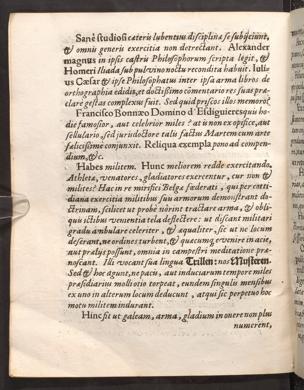 Sanè studiosi cæteris lubentius disciplinæ se subijciunt,
& omnis generis exercitia non detrectant. Alexander
magnus in ipsis castris Philosophorum scripta legit, &
Homeri Iliada sub pulvino noctu recondita habuit. Iuli⸗
us Cæsar & ipse Philosophatus inter ipsa arma libros de
orthographia edidit, et doctissimo comentario res suas præ⸗
clare gestas complexus fuit. Sed quid priscos illos memoro?
Francisco Bonnæo Domino d' Esdiguieres quis ho⸗
die famosior, aut celebrior miles? at is non ex opifice, aut
sellulario, sed jurisdoctore talis factus Martem cum arte
fælicissime conjunxit. Reliqua exempla pono ad compen⸗
dium, &c.
Habes militem. Hunc meliorem redde exercitando.
Athletæ, venatores, gladiatores exercentur, cur non &
milites? Hac in re mirifici Belgæ fœderati, qui per conti⸗
dianæ exercitia militibus suis armorum demonstrant do⸗
ctrinam, scilicet ut probè nôrint tractare arma, & obli⸗
quis ictibus venientia tela deflectere: ut discant militari
gradu ambulare celeriter, & æqualiter, sic ut ne locum
deserant, ne ordines turbent, & quæcunq; evenire in acie,
aut prælijs possunt, omnia in campestri meditatione præ⸗
noscant. Illi vocant sua lingua Trillen: nos Mustern.
Sed & hoc agunt, ne pacis, aut induciarum tempore miles
præsidiarius molli otio torpeat, eundem singulis mensibus
ex uno in alterum locum deducunt, atque sic perpetuo hoc
motu militem indurant.
Hinc fit ut galeam, arma, gladium in onere non plus
numerent,